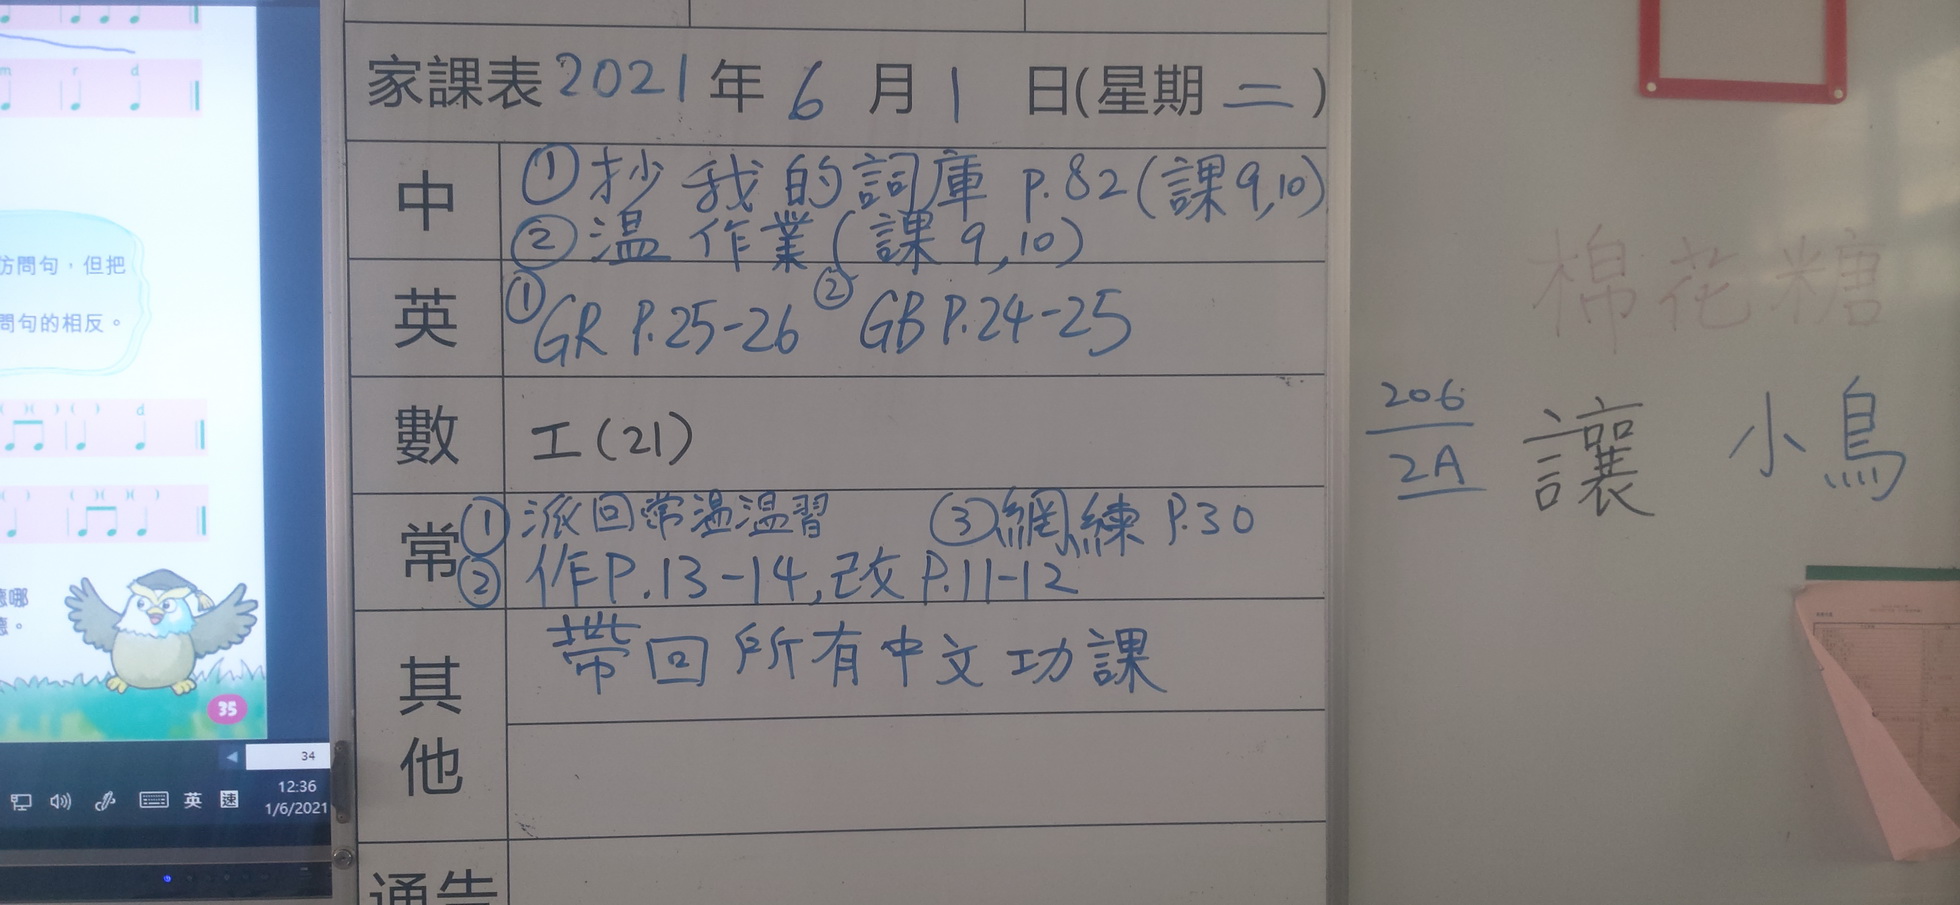 m r d
訪問句，但把
問句的相反。
( )( ) ( ) d
( ) ( )( )( )
哪
。
35
34
英 速
12:36
1/6/2021
家課表 2021 年 6 月 1 日(星期 二)
中
① 抄我的詞庫 P.82(課9,10)
② 温作業(課9,10)
英
① GR P.25-26 ② GB P.24-25
數
工(21)
常
① 派回常温温習 ③ 網練 P.30
② 作P.13-14,改P.11-12
其他
帶回所有中文功課
通告
棉花糖
206
2A
讓 小鳥